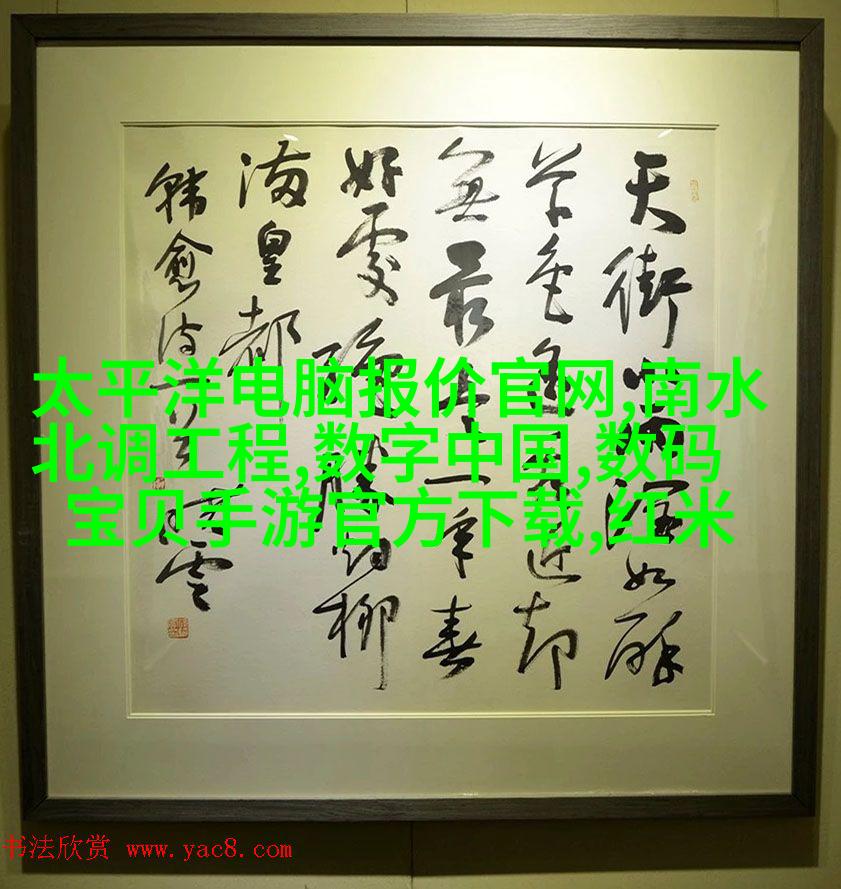 天街小雨潤如酥
草色遙看近却
無最是一年春
好處絕勝烟柳
滿皇都
韓愈詩
太平洋电脑报价官网,南水
北调工程,数字中国,数码
宝贝手游官方下载,红米
书法欣赏 www.yac8.com